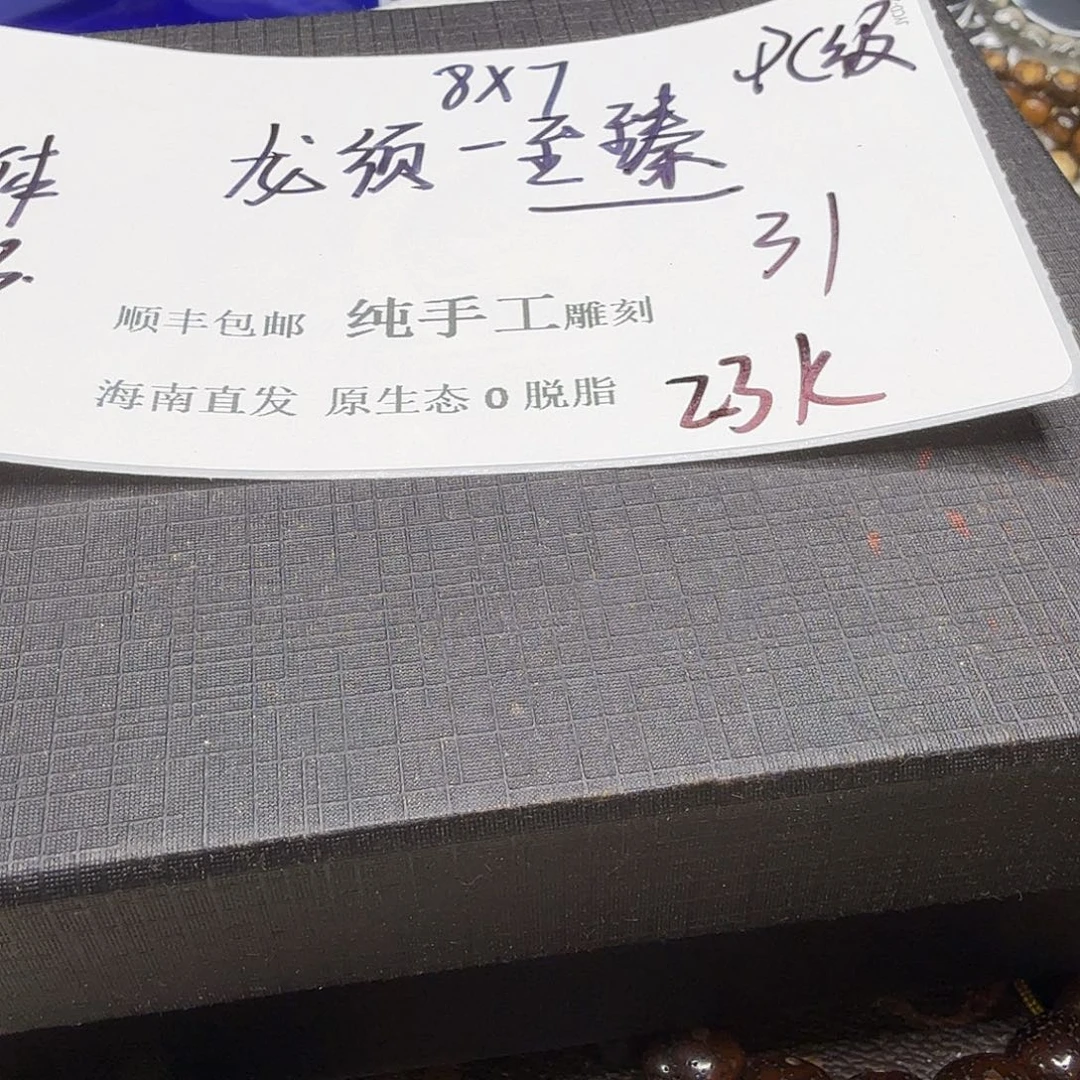 8X7
PC级
龙须一至臻
31
顺丰包邮 纯手工雕刻
海南直发 原生态0脱脂
23K